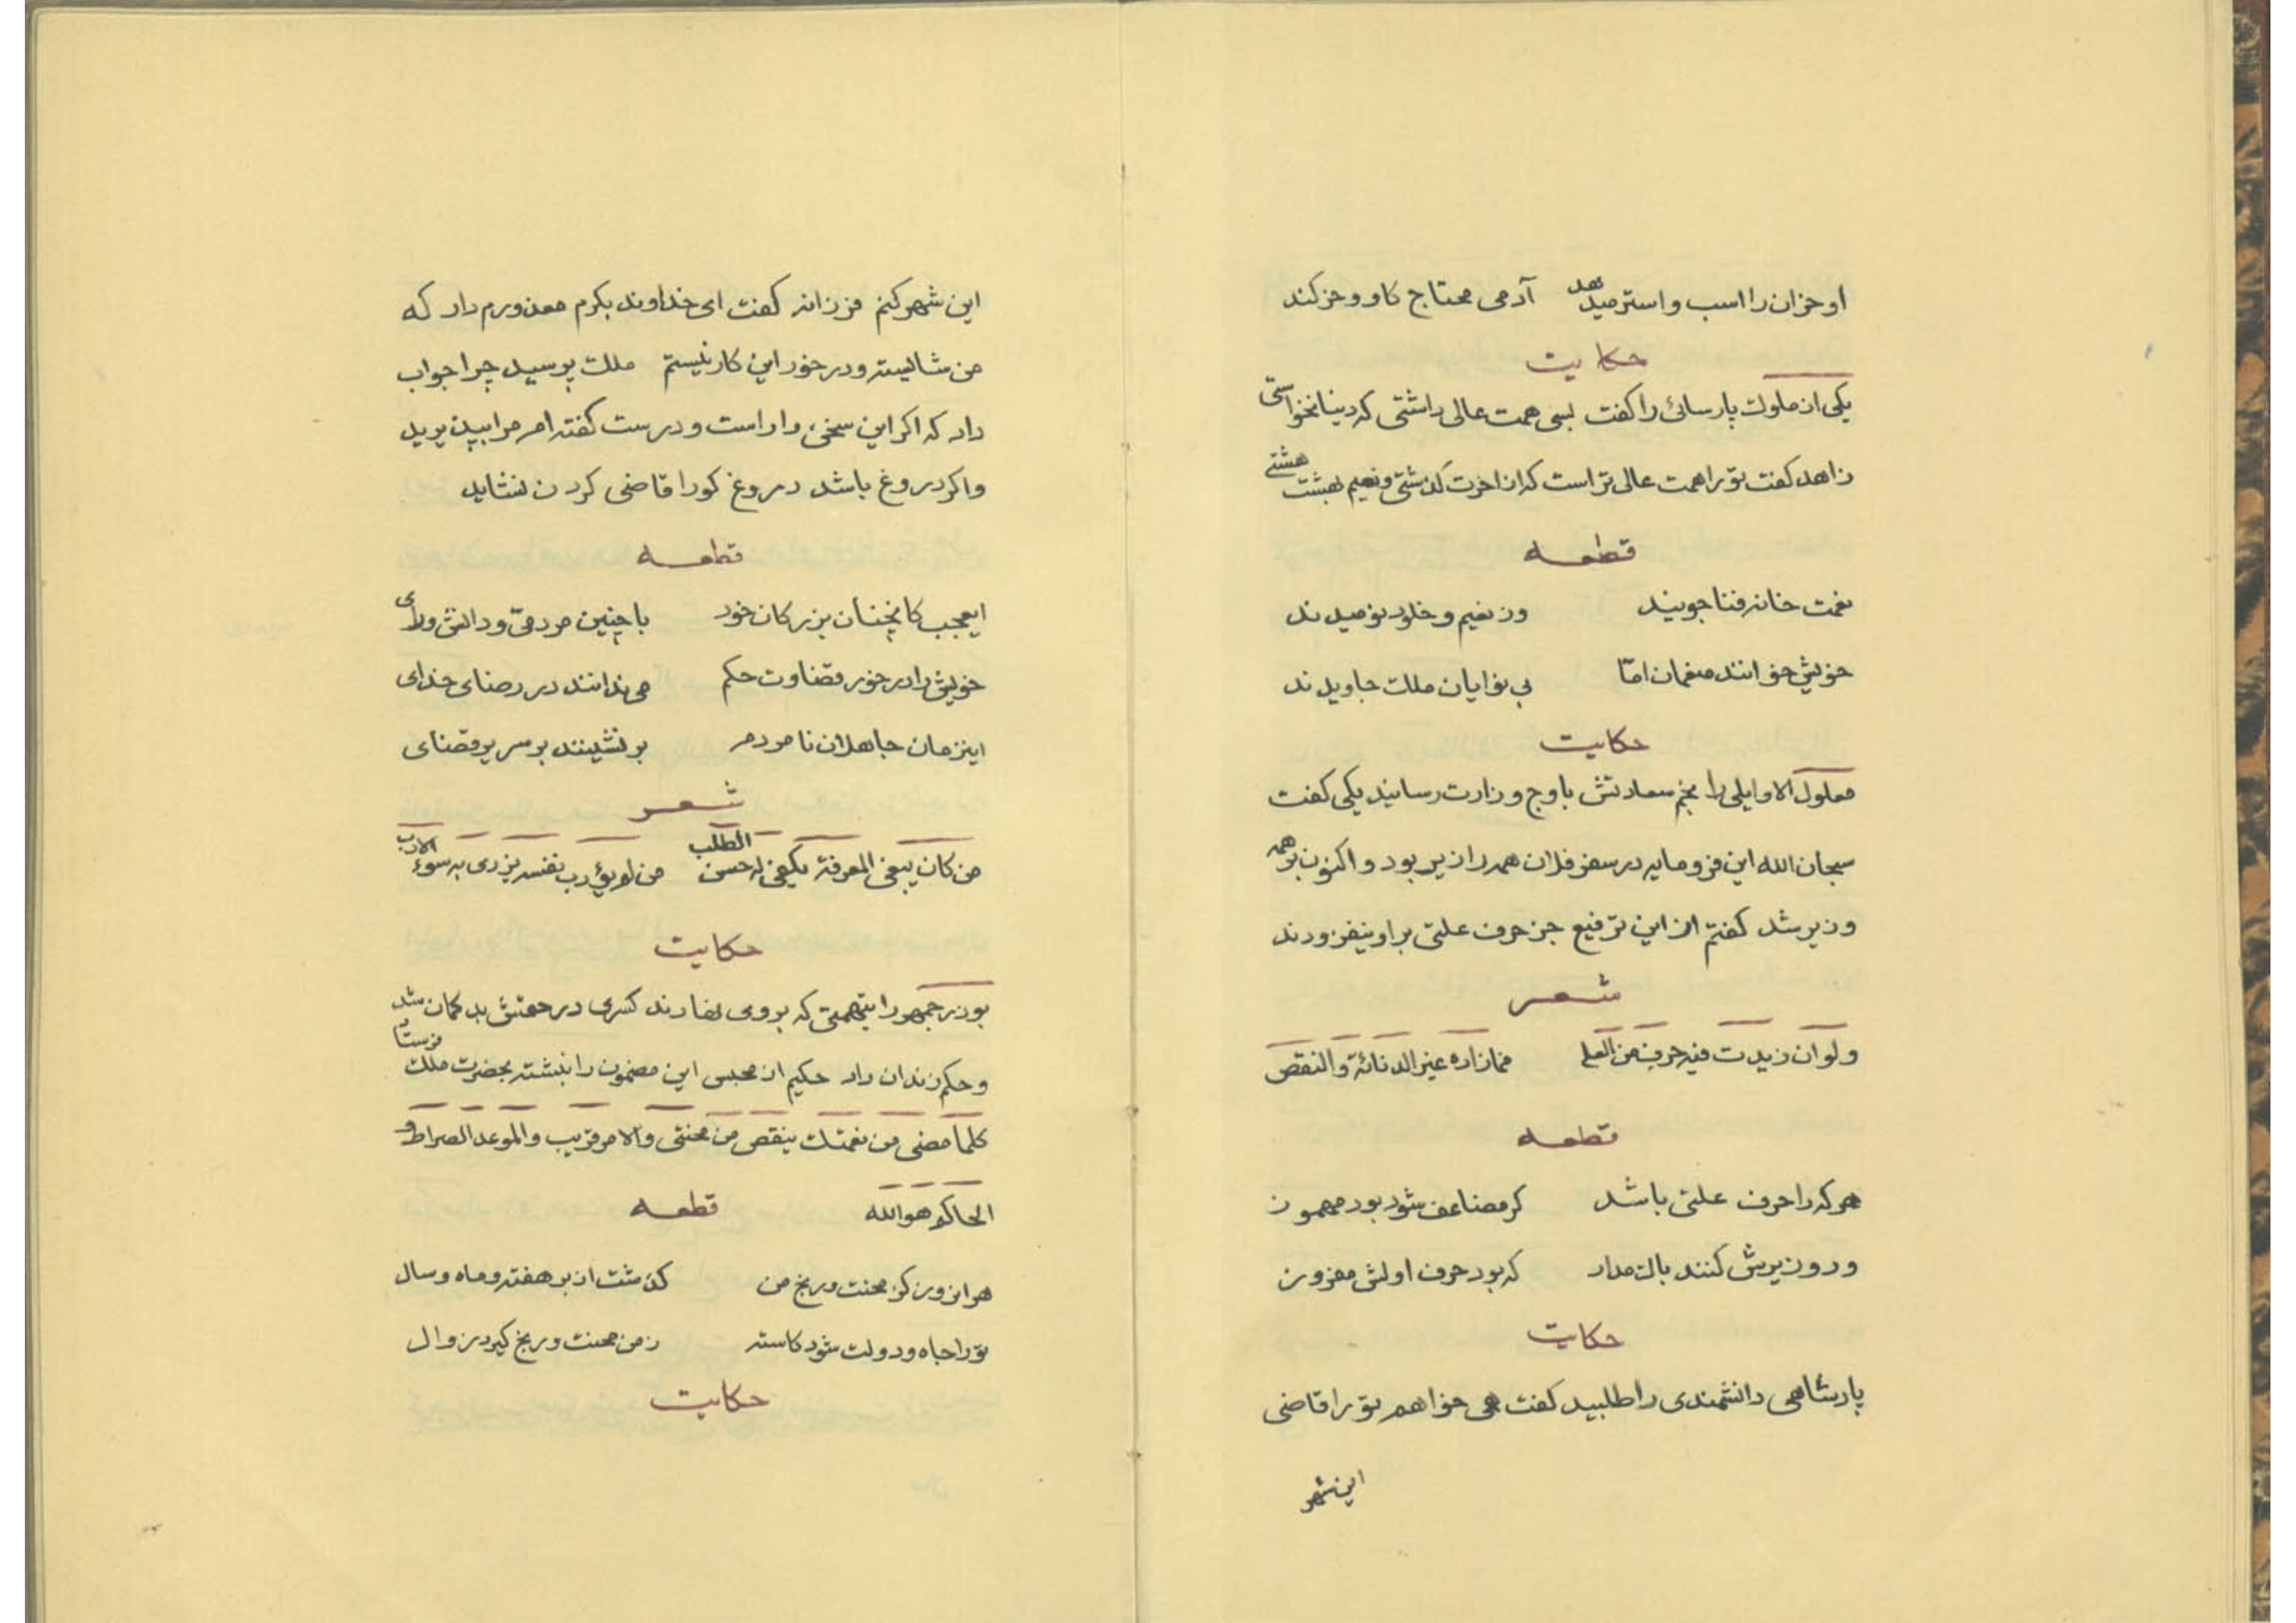 او خران را اسب و استر میدهد آدمی محتاج کاو و خر کند
حکایت
یکی از ملوک پارسائی را کفت بسی همت عالی داشتی که دنیا نخواستی
زاهد کفت تو را همت عالی تر است که از اخرت کذشتی و نعیم بهشت هشتی
قطعه
نعمت خانه فنا جویند وز نعیم و خلود نومیدند
خویش خوانند منعمان امّا بی نوایان ملک جاویدند
حکایت
معلول الاوایلی را نجم سعادتش باوج وزارت رسانید یکی کفت
سبحان الله این فرومایه در سفر فلان همه را زیر بود و اکنون بر همه
وزیر شد کفتم از این ترفیع جز حرف علتی بر او نیفزودند
شعر
ولو ان زیدت فیه حرف من العلم فما زاده غیر الدنائة والنقص
قطعه
هر که را حرف علتی باشد کر مضاعف شود بود مهموز
ور وزیرش کنند باک مدار که بود حرف اولش مفروز
حکایت
پادشاهی دانشمندی را طلبید کفت می خواهم تو را قاضی
این شهر
این شهر کنم فرزانه کفت ای خداوند بکرم معذورم دار که
من شالیسته و در خور این کار نیستم ملک پرسید چرا جواب
داد که اکر این سخن را راست و درست کفته ام مرا بپذیرید
و اکر دروغ باشد دروغ کو را قاضی کردن نشاید
قطعه
ایعجب کانچنان بزرکان خود با چنین مردمی و دانش و رای
خویش را در خور قضاوت حکم می ندانند در رضای خدای
اینزمان جاهلان نامردم بر نشینند بر سریر قضای
شعر
من کان یبغی المعرفة یکفی له حسن الطلب من لم یؤدب نفسه یزری به سوء الادب
حکایت
بوذرجمهر را بتهمتی که بر وی نهادند کسری در حقش بد کمان شد
و حکم زندان داد حکیم از محبس این مضمون را نبشته بحضرت ملک فرستاد
کلما مضی من نعمتک ینقص من محنتی والامر قریب والموعد الصراط و
الحاکم هو الله قطعه
هر انروز کز محنت و رنج من کذشت از بر هفته و ماه و سال
تو را جاه و دولت شود کاسته ز من محنت و رنج کیرد زوال
حکایت